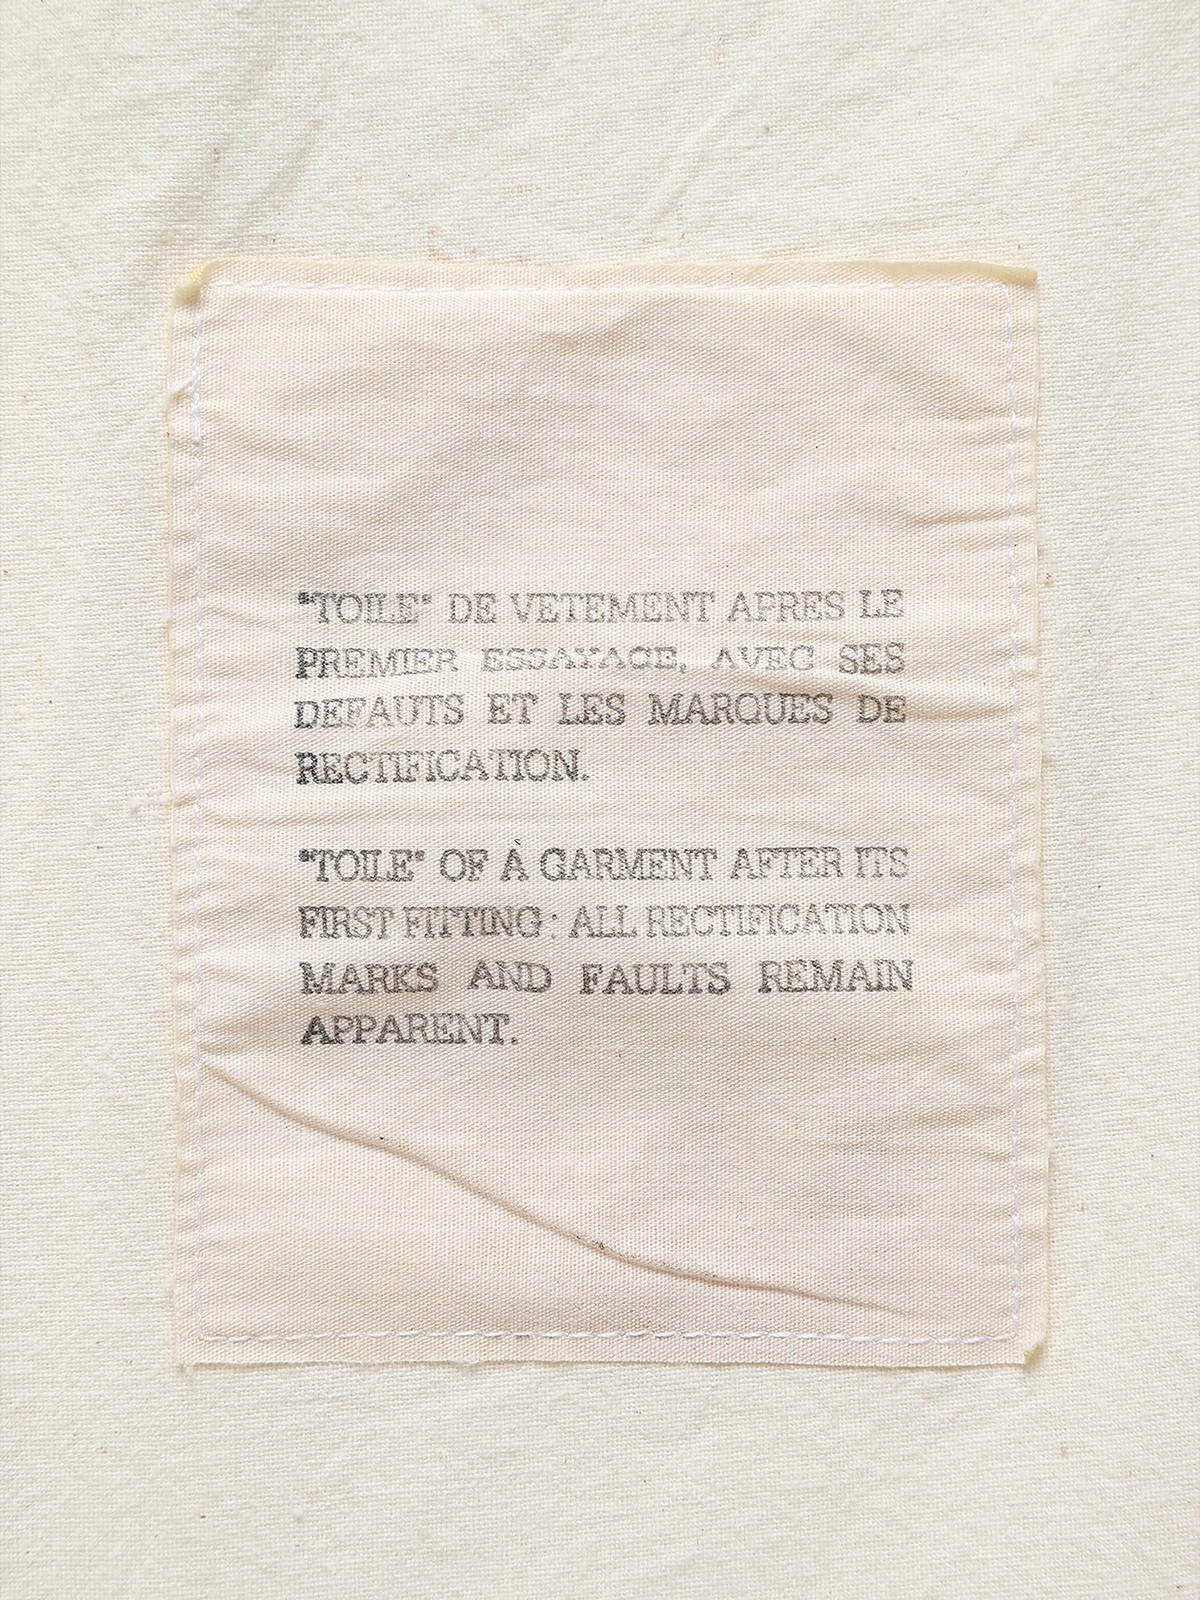 "TOILE" DE VETEMENT APRES LE
PREMIER ESSAYAGE, AVEC SES
DEFAUTS ET LES MARQUES DE
RECTIFICATION.
"TOILE" OF A GARMENT AFTER ITS
FIRST FITTING: ALL RECTIFICATION
MARKS AND FAULTS REMAIN
APPARENT.